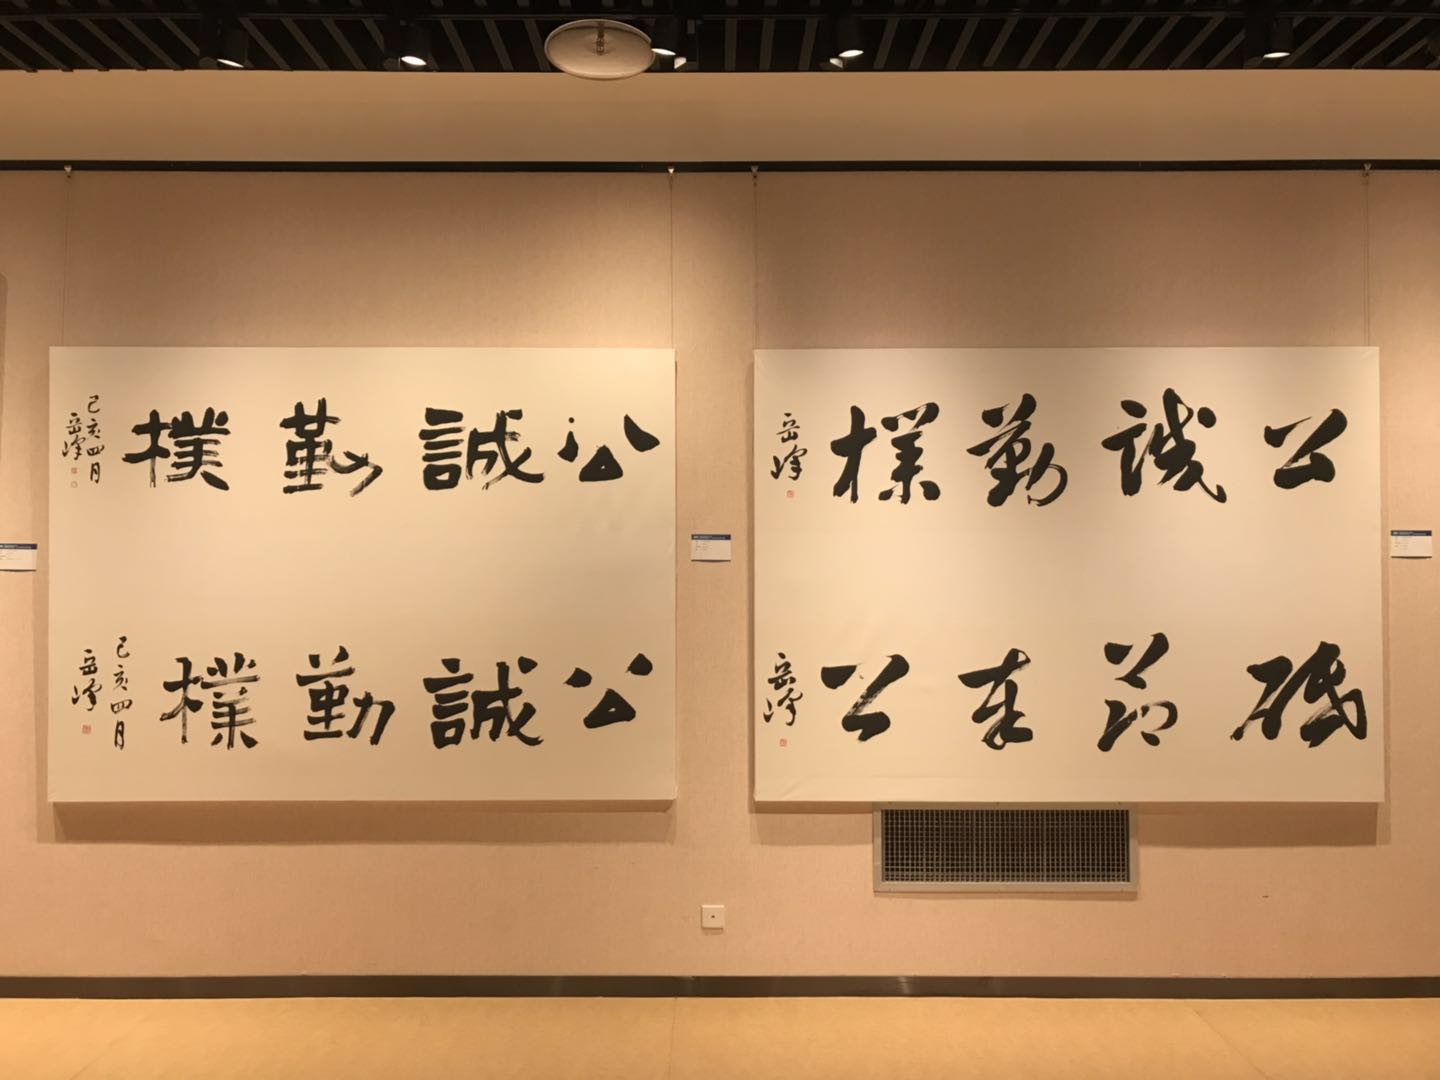 公誠勤樸
己亥四月
岳峰
公誠勤樸
己亥四月
岳峰
公誠勤樸
岳峰
砥節奉公
岳峰